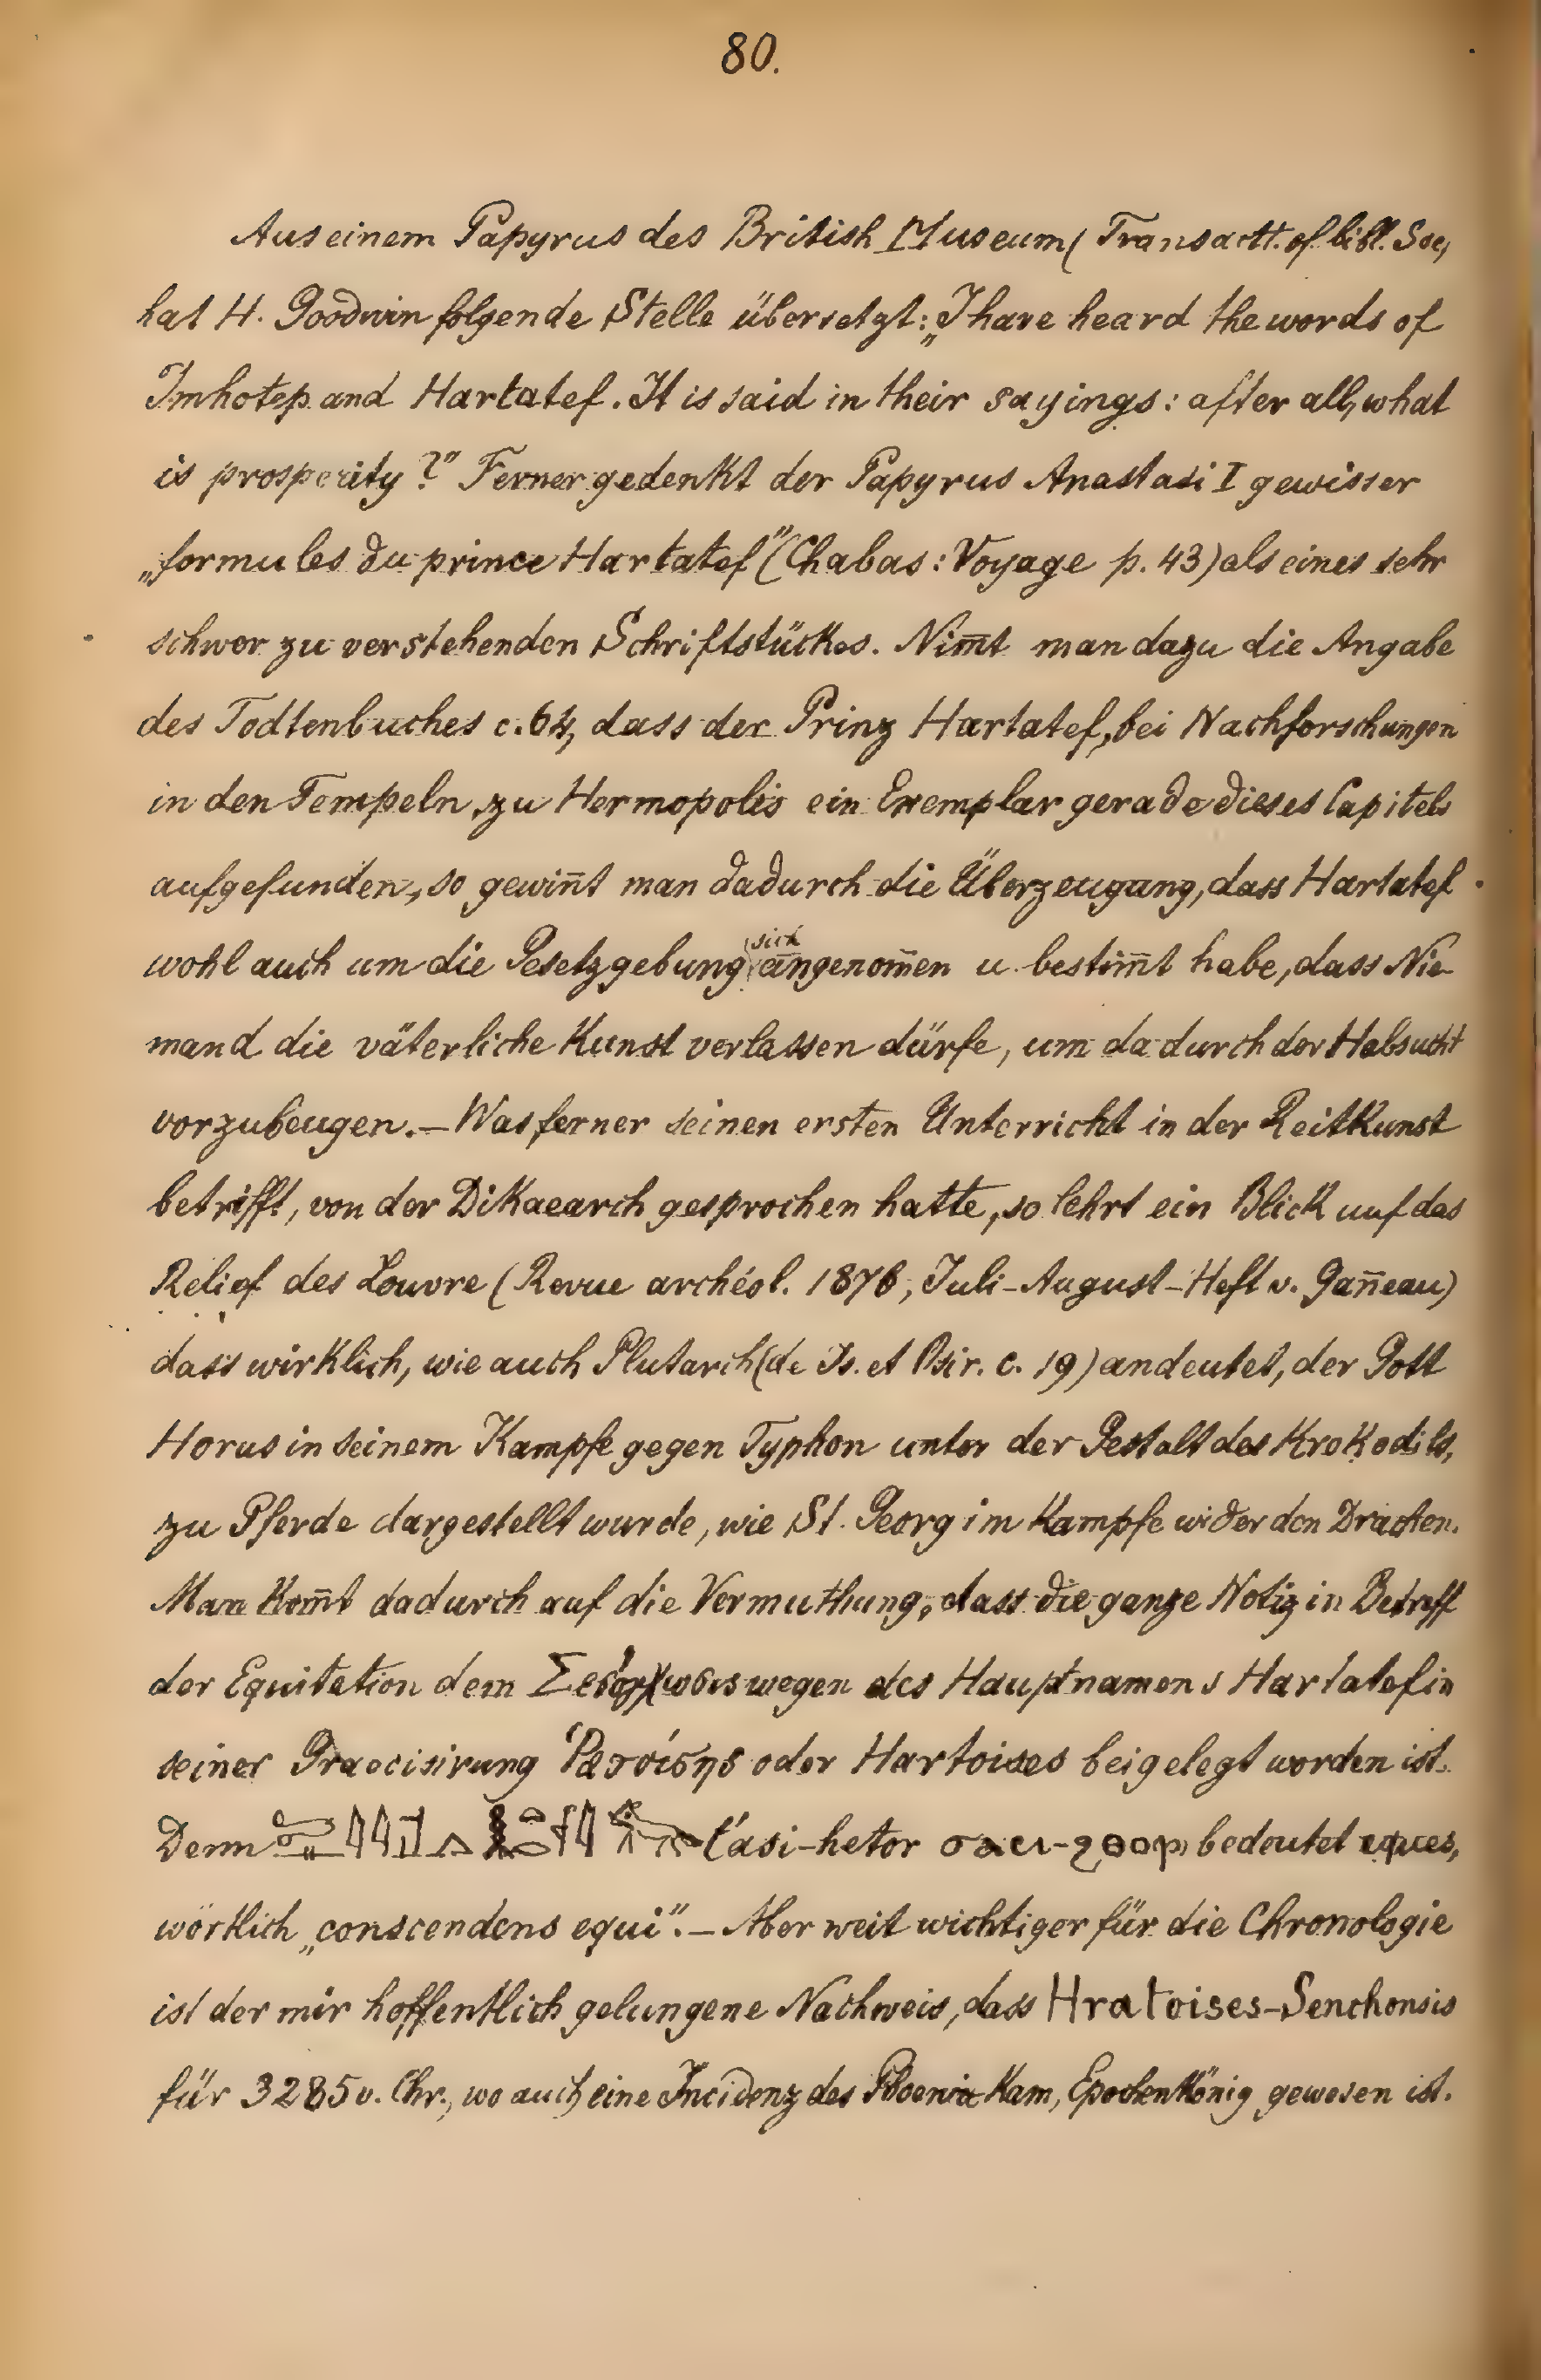 80.
Aus einem Papyrus des British Museum (Transactt. of bibl. Soc,
hat H. Goodwin folgende Stelle übersetzt: „I have heard the words of
Imhotep and Hartatef. It is said in their sayings: after all, what
is prosperity?" Ferner gedenkt der Papyrus Anastasi I gewisser
„formules du prince Hartatef" (Chabas: Voyage p. 43) als eines sehr
schwer zu verstehenden Schriftstückes. Nim̅t man dazu die Angabe
des Todtenbuches c. 64, dass der Prinz Hartatef, bei Nachforschungen
in den Tempeln zu Hermopolis ein Exemplar gerade dieses Capitels
aufgefunden, so gewin̅t man dadurch die Überzeugung, dass Hartatef
wohl auch um die Gesetzgebung sich angenom̅en u. bestim̅t habe, dass Nie-
mand die väterliche Kunst verlassen dürfe, um dadurch der Habsucht
vorzubeugen. – Was ferner seinen ersten Unterricht in der Reitkunst
betrifft, von der Dikaearch gesprochen hatte, so lehrt ein Blick auf das
Relief des Louvre (Revue archéol. 1876, Juli-August-Heft v. Gan̅eau)
dass wirklich, wie auch Plutarch (de Is. et Osir. c. 19) andeutet, der Gott
Horus in seinem Kampfe gegen Typhon unter der Gestalt des Krokodils,
zu Pferde dargestellt wurde, wie St. Georg im Kampfe wider den Drachen.
Man kom̅t dadurch auf die Vermuthung, dass die ganze Notiz in Betreff
der Equitation dem wegen des Hauptnamens Hartatef in
seiner Praecisirung Ῥατοίσης oder Hartoises beigelegt worden ist.
Denn t'asi-hetor ϭⲁⲥⲓ-ϩⲑⲟⲣ bedeutet eques,
wörtlich „conscendens equi". – Aber weit wichtiger für die Chronologie
ist der mir hoffentlich gelungene Nachweis, dass Hratoises-Senchonsis
für 3285 v. Chr., wo auch eine Incidenz des Phoenix kam, Epochenkönig gewesen ist.